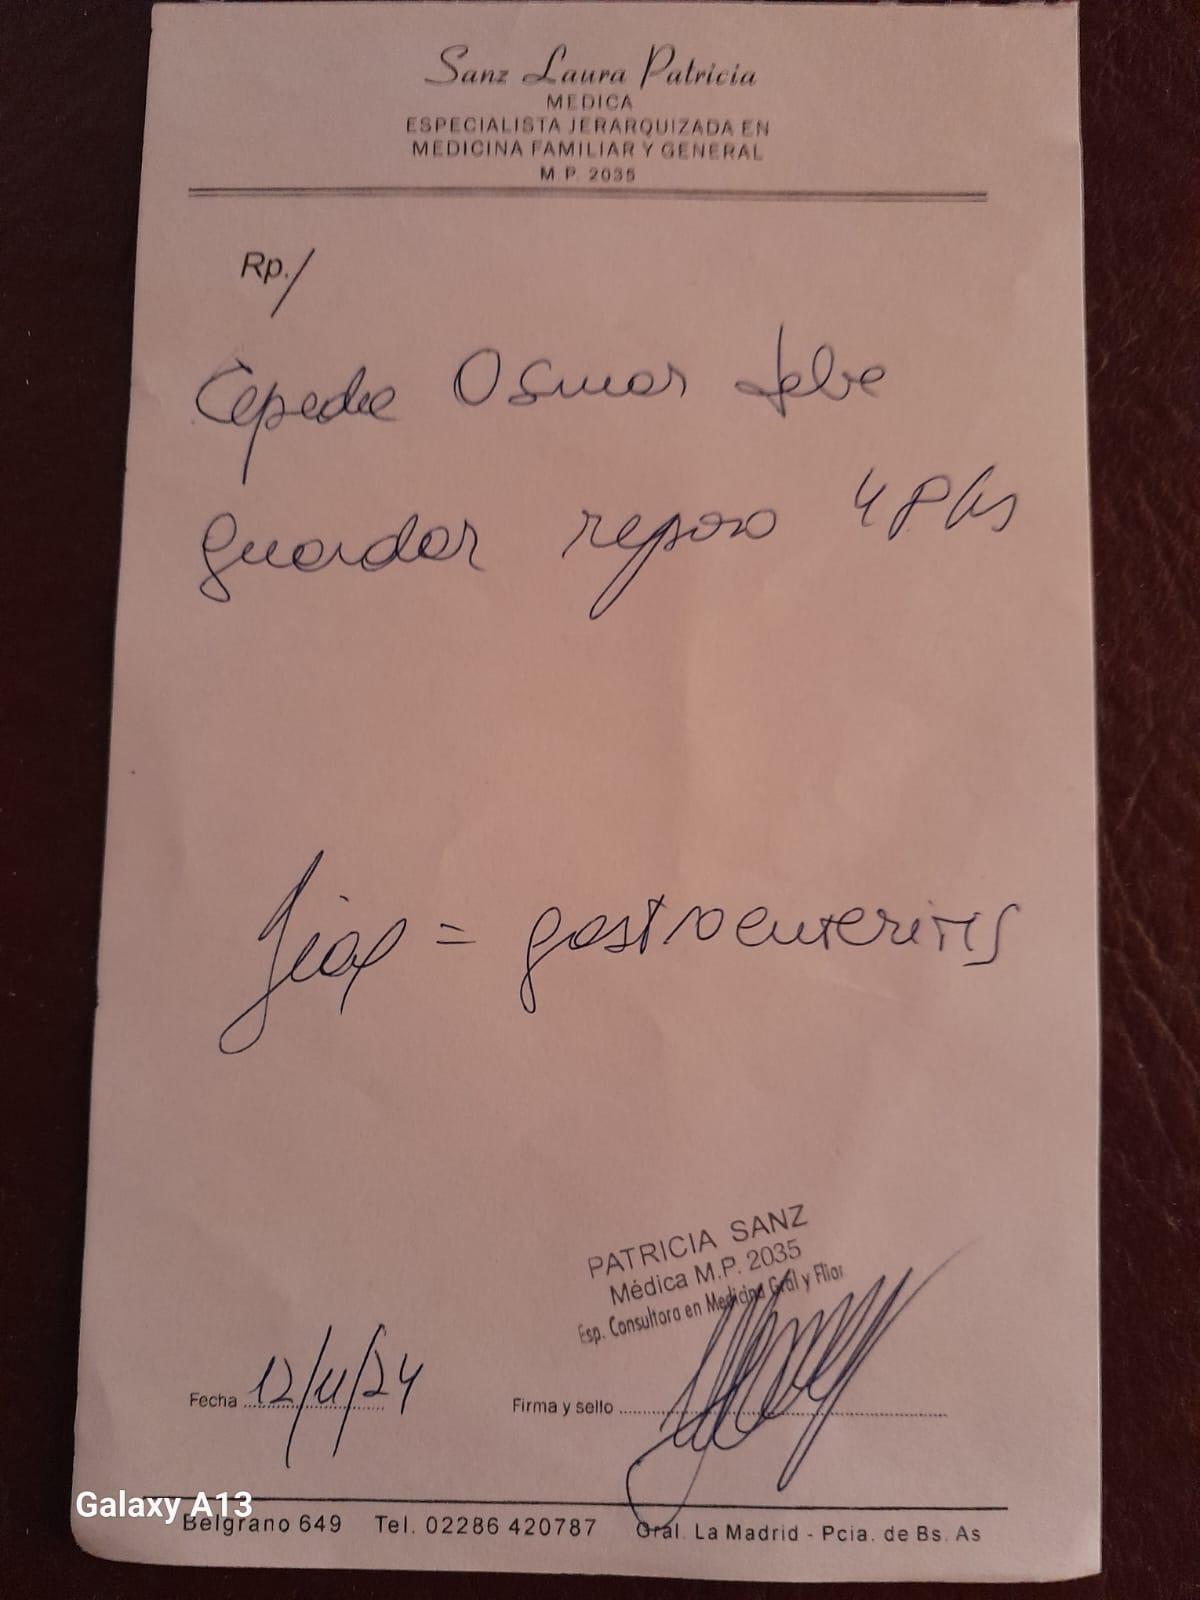 Sanz Laura Patricia
MEDICA
ESPECIALISTA JERARQUIZADA EN
MEDICINA FAMILIAR Y GENERAL
M.P. 2035
Rp./
Osmar debe
guardar reposo 48 hs
Diag = gastroenteritis
PATRICIA SANZ
Médica M.P. 2035
Esp. Consultora en Medicina Gral y Fliar
Fecha 12/11/24 Firma y sello
Galaxy A13
Belgrano 649 Tel. 02286 420787 Gral. La Madrid - Pcia. de Bs. As